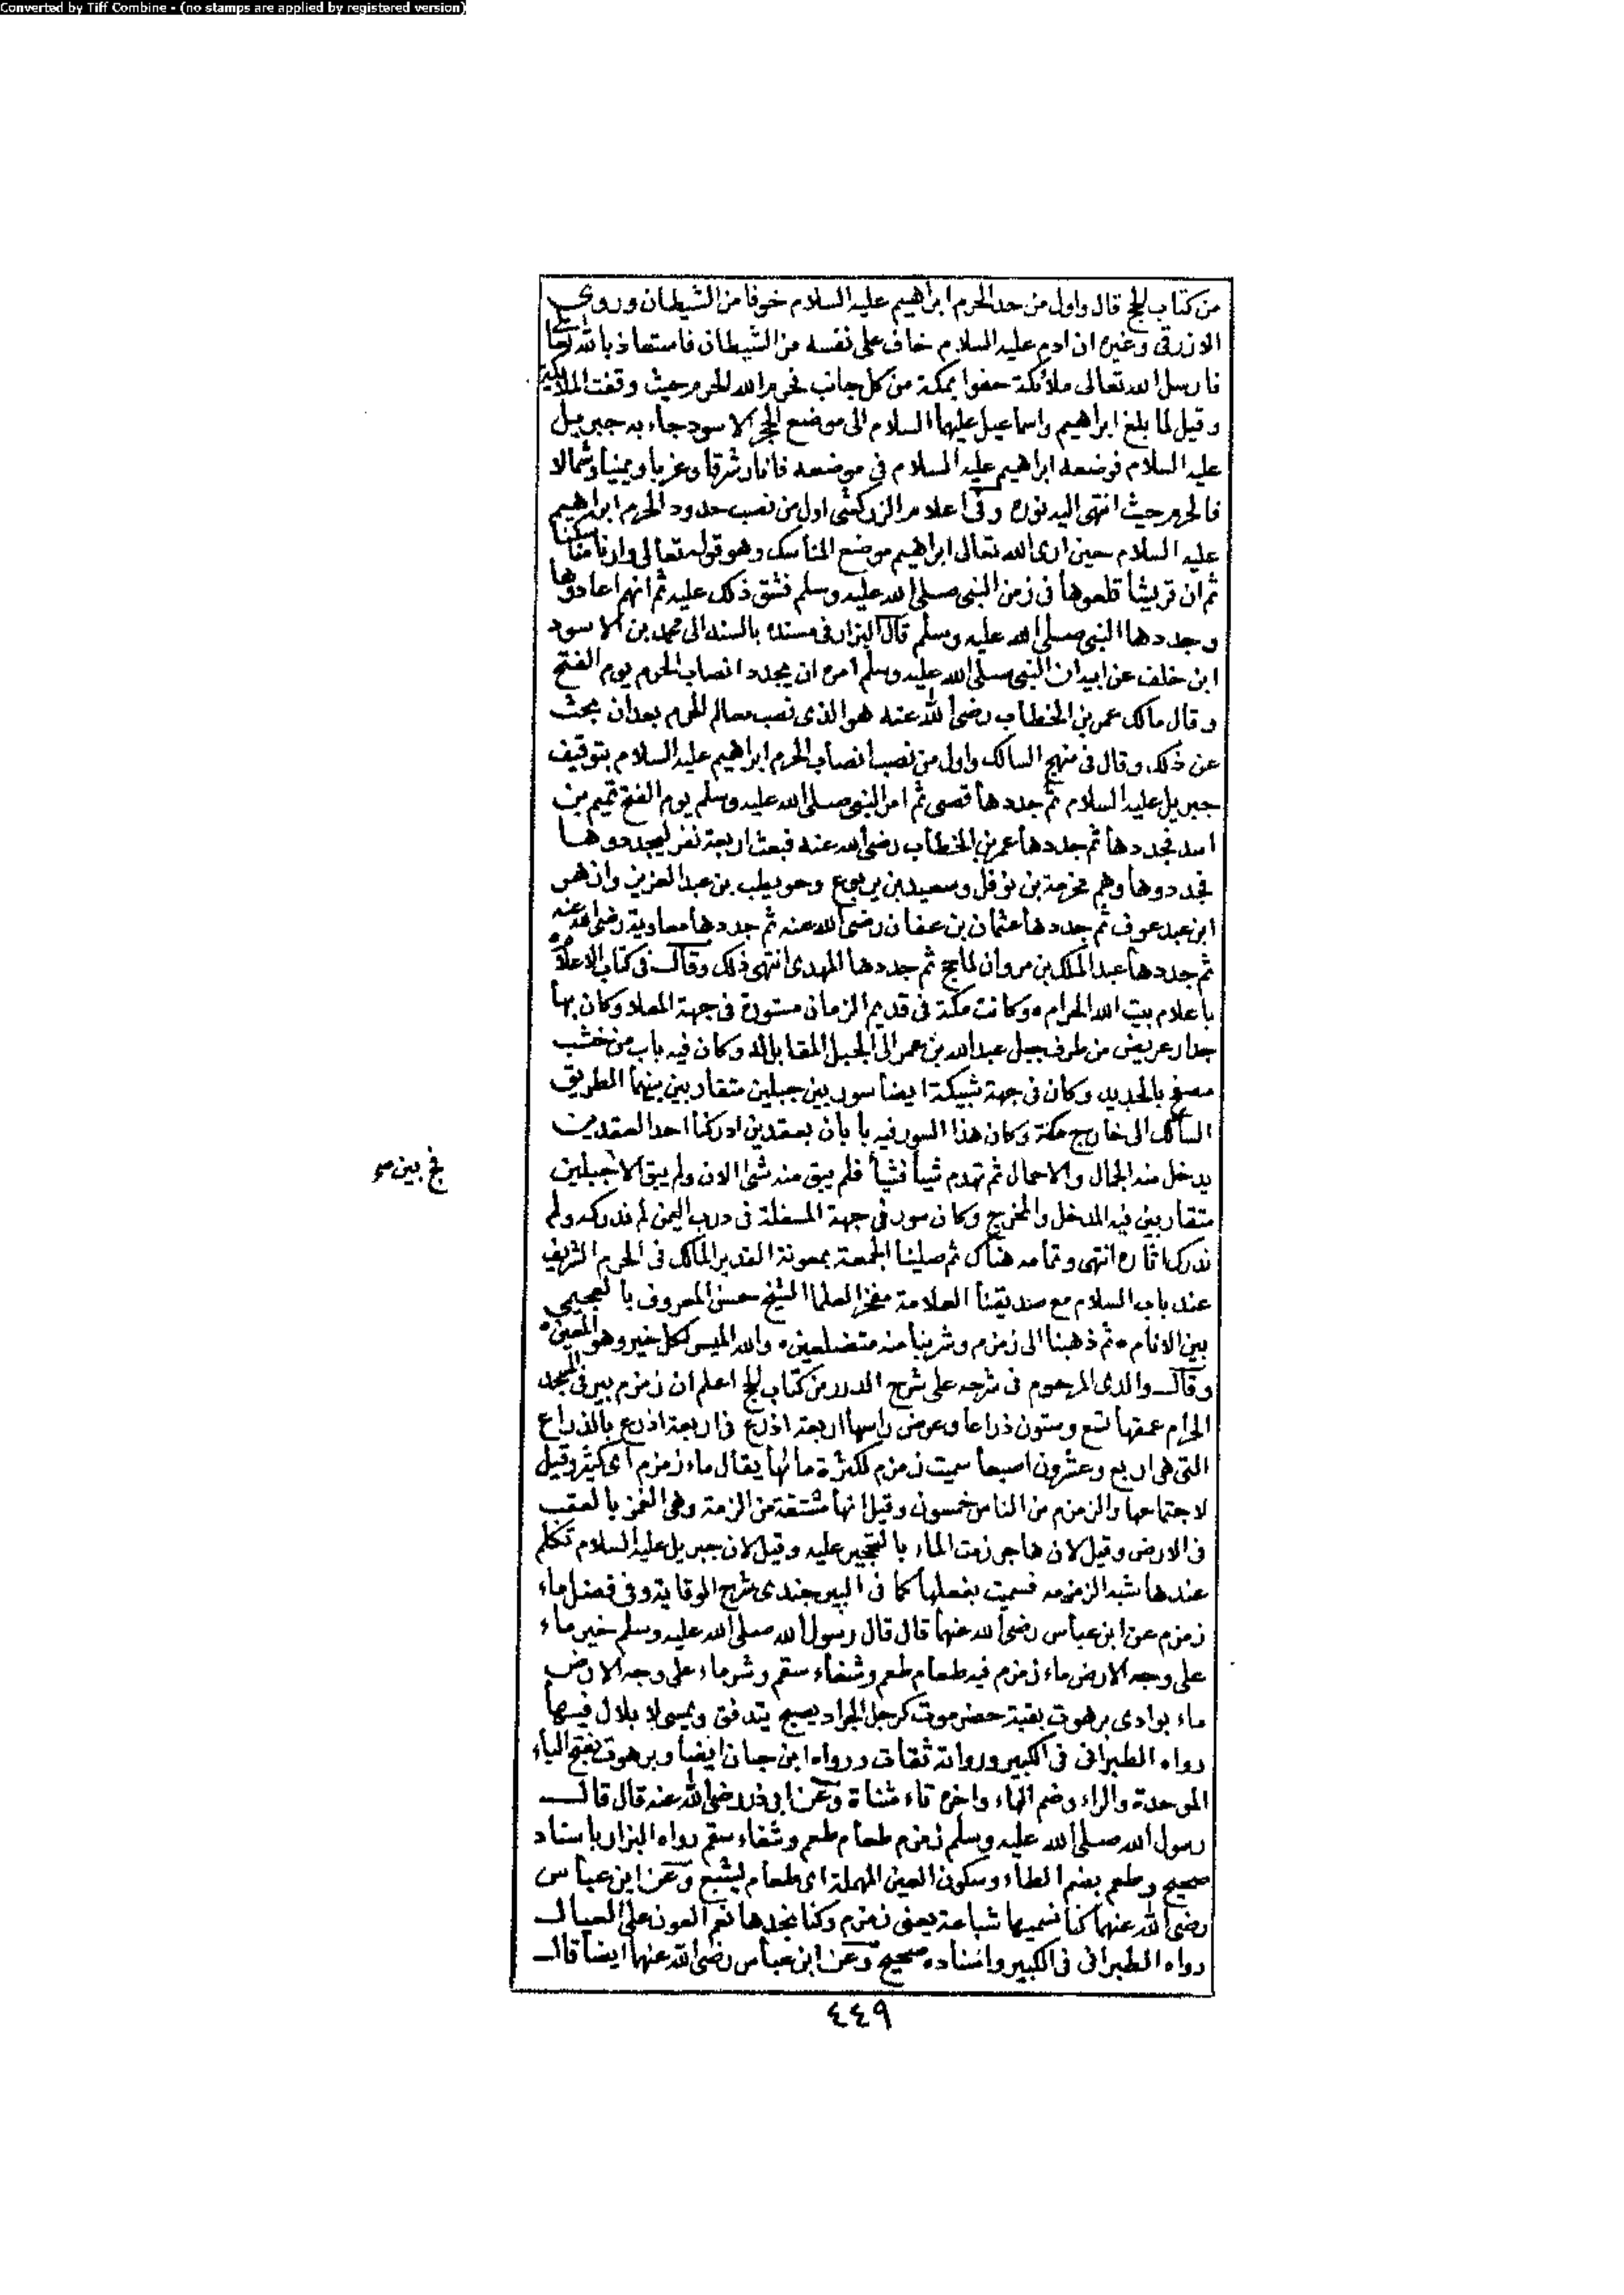 Converted by Tiff Combine - (no stamps are applied by registered version)
من كتاب الحج قال واول من حد الحرم ابراهيم عليه السلام خوفا من الشيطان وروى
الازرقى وغيره ان ادم عليه السلام خاف على نفسه من الشيطان فاستعاذ بالله تعالى
فارسل الله تعالى ملائكة حفوا بمكة من كل جانب فحرم الله الحرم حيث وقفت الملائكة
وقيل لما بلغ ابراهيم واسماعيل عليهما السلام الى موضع الحجر الاسود جاء به جبريل
عليه السلام فوضعه ابراهيم عليه السلام فى موضعه فانار شرقا وغربا ويمينا وشمالا
فالحرم حيث انتهى اليه نوره وفى اعلام الزركشى اول من نصب حدود الحرم ابراهيم
عليه السلام حين ارى الله تعالى ابراهيم موضع المناسك وهو قوله تعالى وارنا مناسكنا
ثم ان قريشا قلعوها فى زمن النبى صلى الله عليه وسلم فشق ذلك عليه ثم انهم اعادوها
وجددها النبى صلى الله عليه وسلم قال البزار فى مسنده بالسند الى محمد بن الاسود
ابن خلف عن ابيه ان النبى صلى الله عليه وسلم امره ان يجدد انصاب الحرم يوم الفتح
وقال مالك عمر بن الخطاب رضى الله عنه هو الذى نصب معالم الحرم بعد ان بحث
عن ذلك وقال فى منهج السالك واول من نصب انصاب الحرم ابراهيم عليه السلام بتوقيف
جبريل عليه السلام ثم جددها قصى ثم امر النبى صلى الله عليه وسلم يوم الفتح تميم بن
اسد فجددها ثم جددها عمر بن الخطاب رضى الله عنه فبعث اربعة نفر ليجددوها
فجددوها وهم مخرمة بن نوفل وسعيد بن يربوع وحويطب بن عبد العزيز وازهر
ابن عبد عوف ثم جددها عثمان بن عفان رضى الله عنه ثم جددها معاوية رضى الله عنه
ثم جددها عبد الملك بن مروان لما حج ثم جددها المهدى انتهى ذلك وقال فى كتاب الاعلام
باعلام بيت الله الحرام وكانت مكة فى قديم الزمان مستورة فى جهة المعلاة وكان بها
جدار عريض من طرف جبل عبد الله بن عمر الى الجبل المقابل له وكان فيه باب من خشب
مصفح بالحديد وكان فى جهة شبيكة ايضا سور بين جبلين متقاربين بينهما الطريق
السالك الى خارج مكة وكان هذا السور فيه بابان بعقدين ادركنا احد العقدين
يدخل منه الجمال والاحمال ثم تهدم شيأ فشيأ فلم يبق منه شئ الان ولم يبق الا جبلين
فج بين صح
متقاربين فيه المدخل والمخرج وكان سور فى جهة المسفلة فى درب اليمن لم ندركه ولم
ندرك اثاره انتهى وتمامه هناك ثم صلينا الجمعة بمعونة القدير المالك فى الحرم الشريف
عند باب السلام مع صديقنا العلامة مفخر العلما الشيخ حسن المعروف بالعجيمى
بين الانام ثم ذهبنا الى زمزم وشربنا منه متضلعين والله الميسر لكل خير وهو المعين
وقال والدى المرحوم فى شرحه على شرح الدرر من كتاب الحج اعلم ان زمزم بير فى المسجد
الحرام عمقها تسع وستون ذراعا وعرض راسها اربعة اذرع فى اربعة اذرع بالذراع
التى هى اربع وعشرون اصبعا سميت زمزم لكثرة مائها يقال ماء زمزم اى كثير وقيل
لاجتماعها والزمزم من الناس خمسون وقيل انها مشتقة من الزمة وهى الغمز بالعقب
فى الارض وقيل لان هاجر زمت الماء بالتحجير عليه وقيل لان جبريل عليه السلام تكلم
عندها شبه الزمزمه فسميت بفعلها كما فى البيرجندى شرح الوقاية وفى فضل ماء
زمزم عن ابن عباس رضى الله عنهما قال قال رسول الله صلى الله عليه وسلم خير ماء
على وجه الارض ماء زمزم فيه طعام طعم وشفاء سقم وشر ماء على وجه الارض
ماء بوادى برهوت بقبة حضرموت كرجل الجراد يصبح يتدفق ويمسى لا بلال فيها
رواه الطبرانى فى الكبير ورواته ثقات ورواه ابن حبان ايضا وبرهوت بفتح الباء
الموحدة والراء وضم الهاء واخره تاء مثناة وعن ابى ذر رضى الله عنه قال قال
رسول الله صلى الله عليه وسلم زمزم طعام طعم وشفاء سقم رواه البزار باسناد
صحيح وطعم بضم الطاء وسكون العين المهملة اى طعام يشبع وعن ابن عباس
رضى الله عنهما كنا نسميها شباعة يعنى زمزم وكنا نجدها نعم العون على العيال
رواه الطبرانى فى الكبير واسناده صحيح وعن ابن عباس رضى الله عنهما ايضا قال
٤٤٩